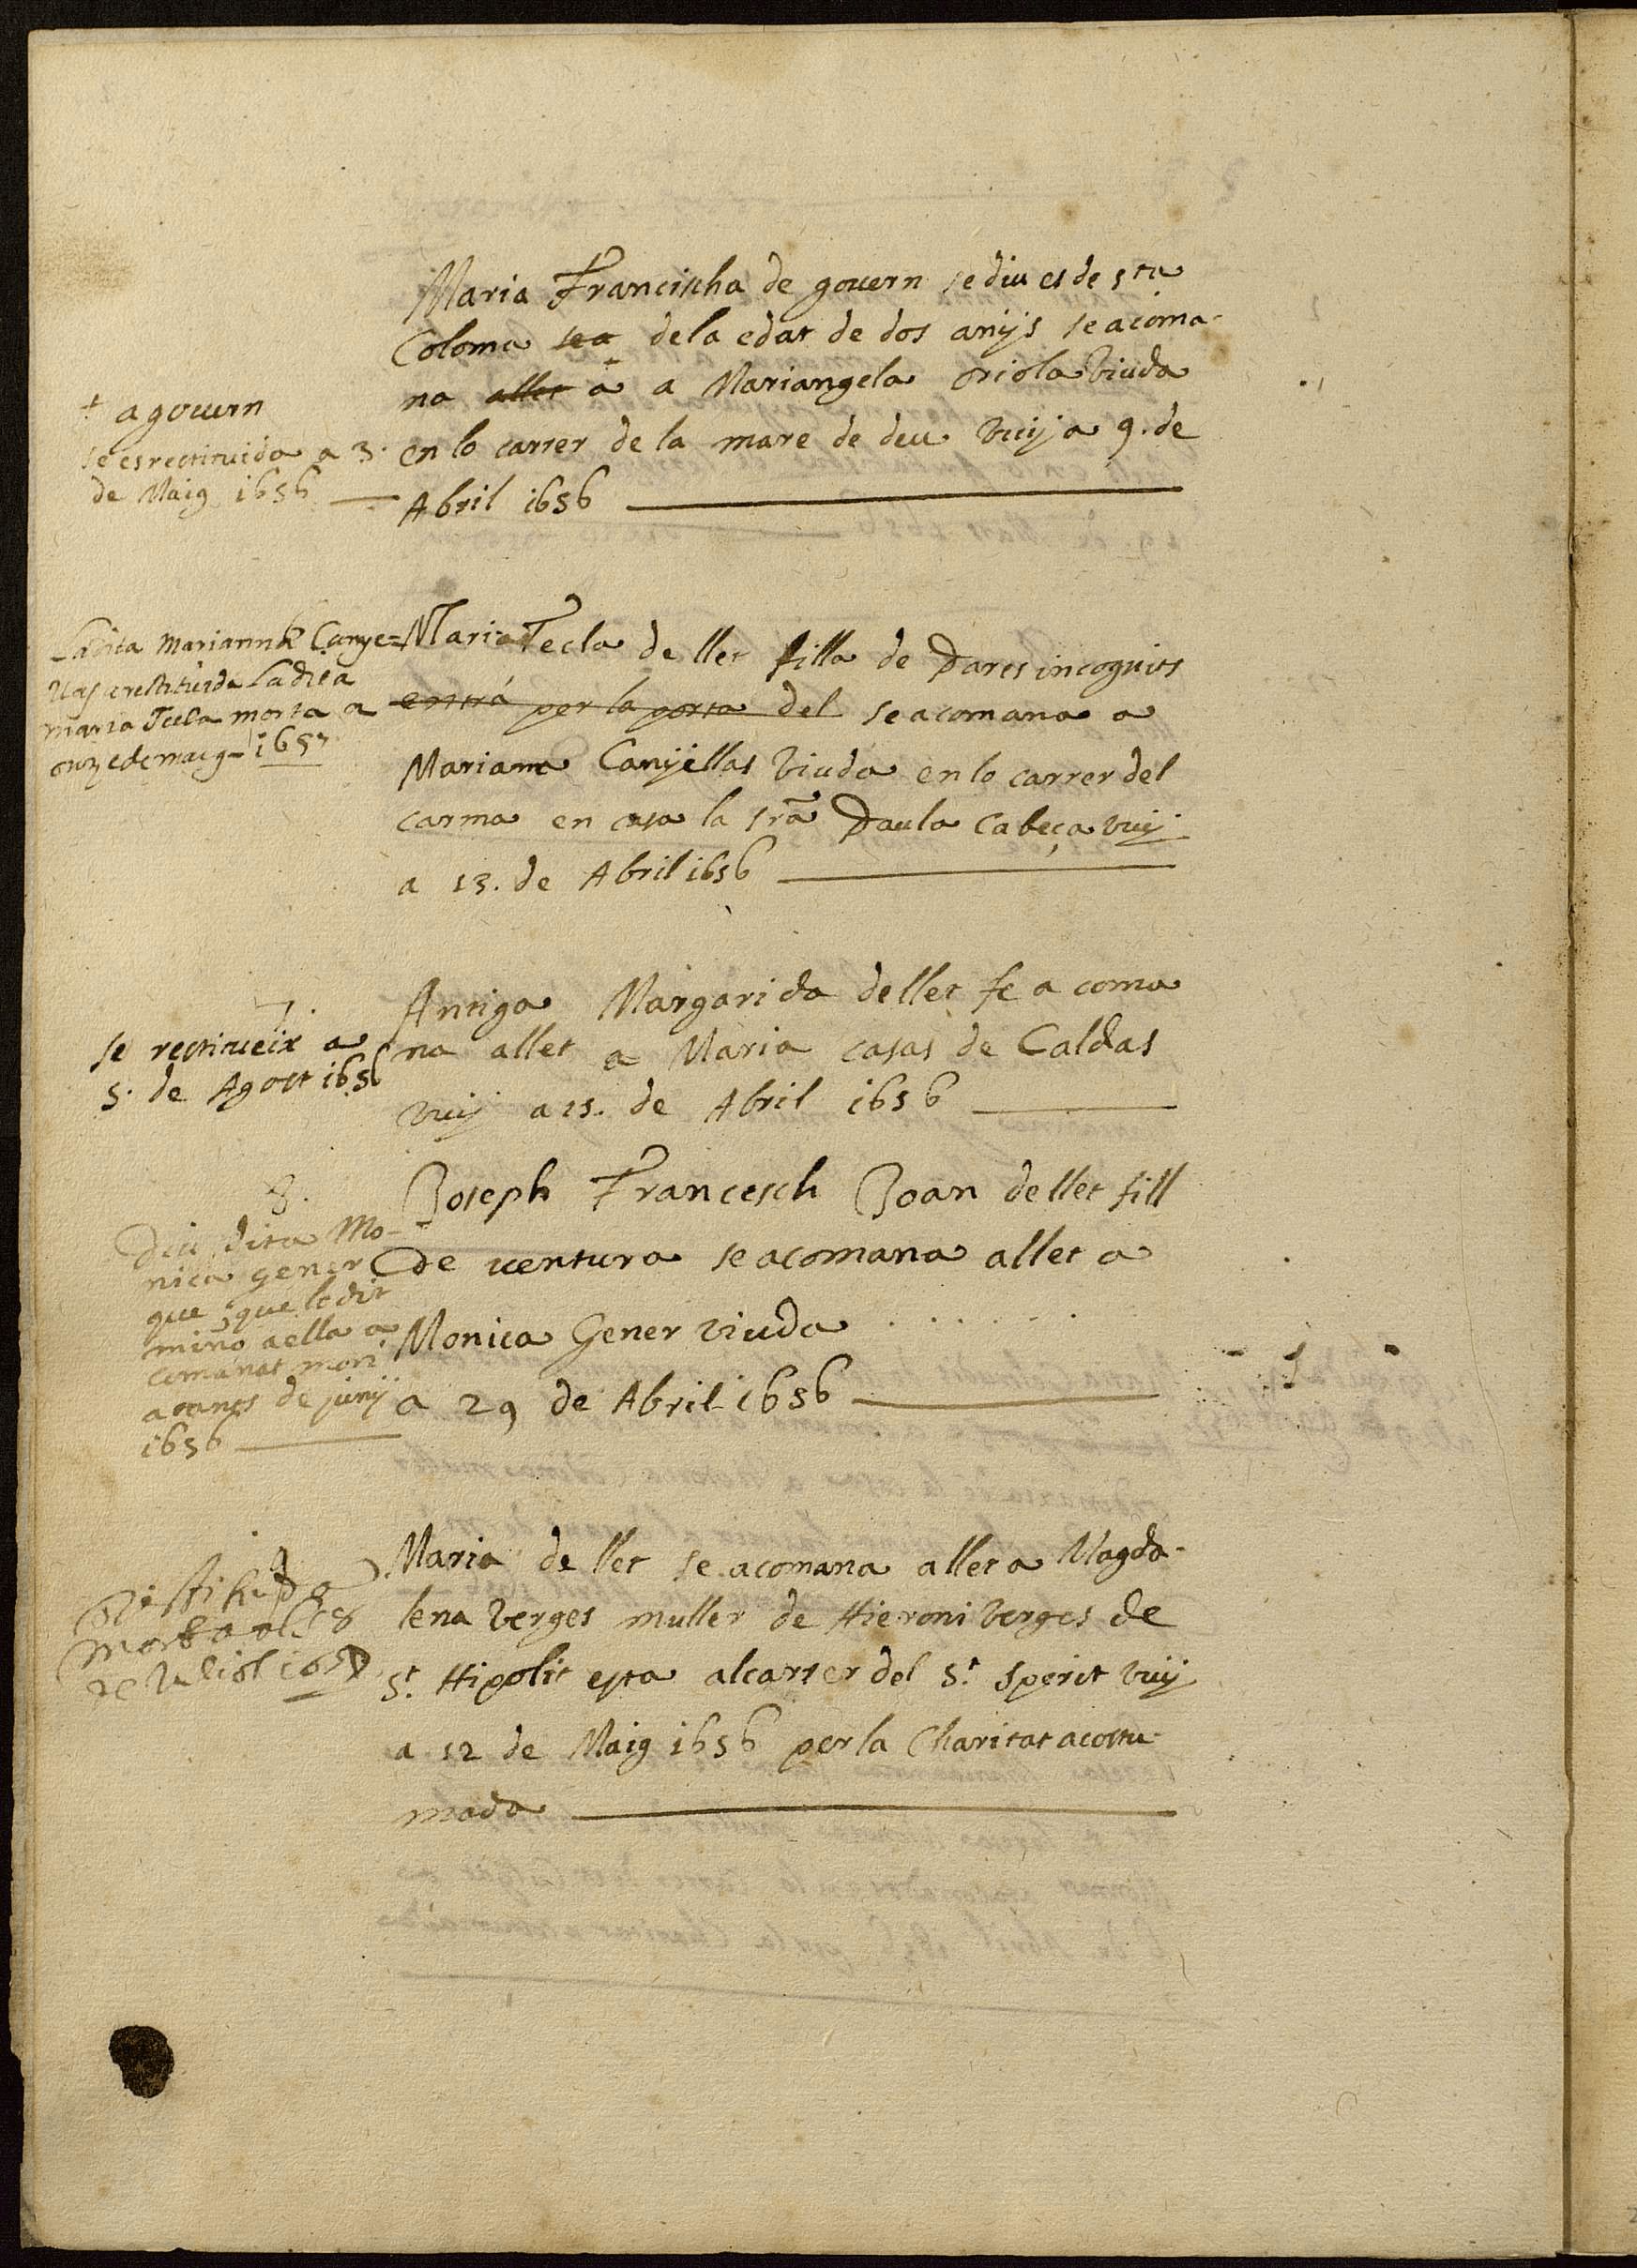 Maria Francischa de govern se diu es de sta
Coloma sea dela edat de dos anys se acoma-
na allet a a Mariangela Oriola viuda
en lo carrer de la mare de deu vuy a 9. de
Abril 1656
+ a govern
se es restituida a 3.
de Maig 1656
Maria Tecla de llet filla de Pares incognits
entrá per la porta del se acomana a
Mariana Canyellas viuda en lo carrer del
carma en casa la Sra Paula Cabeça vuy
a 13. de Abril 1656
La dita Marianna Canye=
llas a restituida La dita
maria Tecla morta a
onze de maig 1657
Antiga Margarida de llet se acoma
na allet a Maria casas de Caldas
vuy a 15. de Abril 1656
7.
se restitueix a
5. de Agost 1656
Joseph Francesch Joan de llet fill
de ventura se acomana allet a
Monica Gener viuda . . . . . .
a 29 de Abril 1656
8.
Diu dita Mo-
nica gener
que, que lo dit
miño a ella a
comanat mori
a de juny
1656
Maria de llet se acomana allet a Magda-
lena verges muller de Hieroni verges de
St. Hipolit esta al carrer del St. Sperit vuy
a 12 de Maig 1656 per la Charitat acostu-
mada
9
Restituida
morta als 8
de Juliol 1657